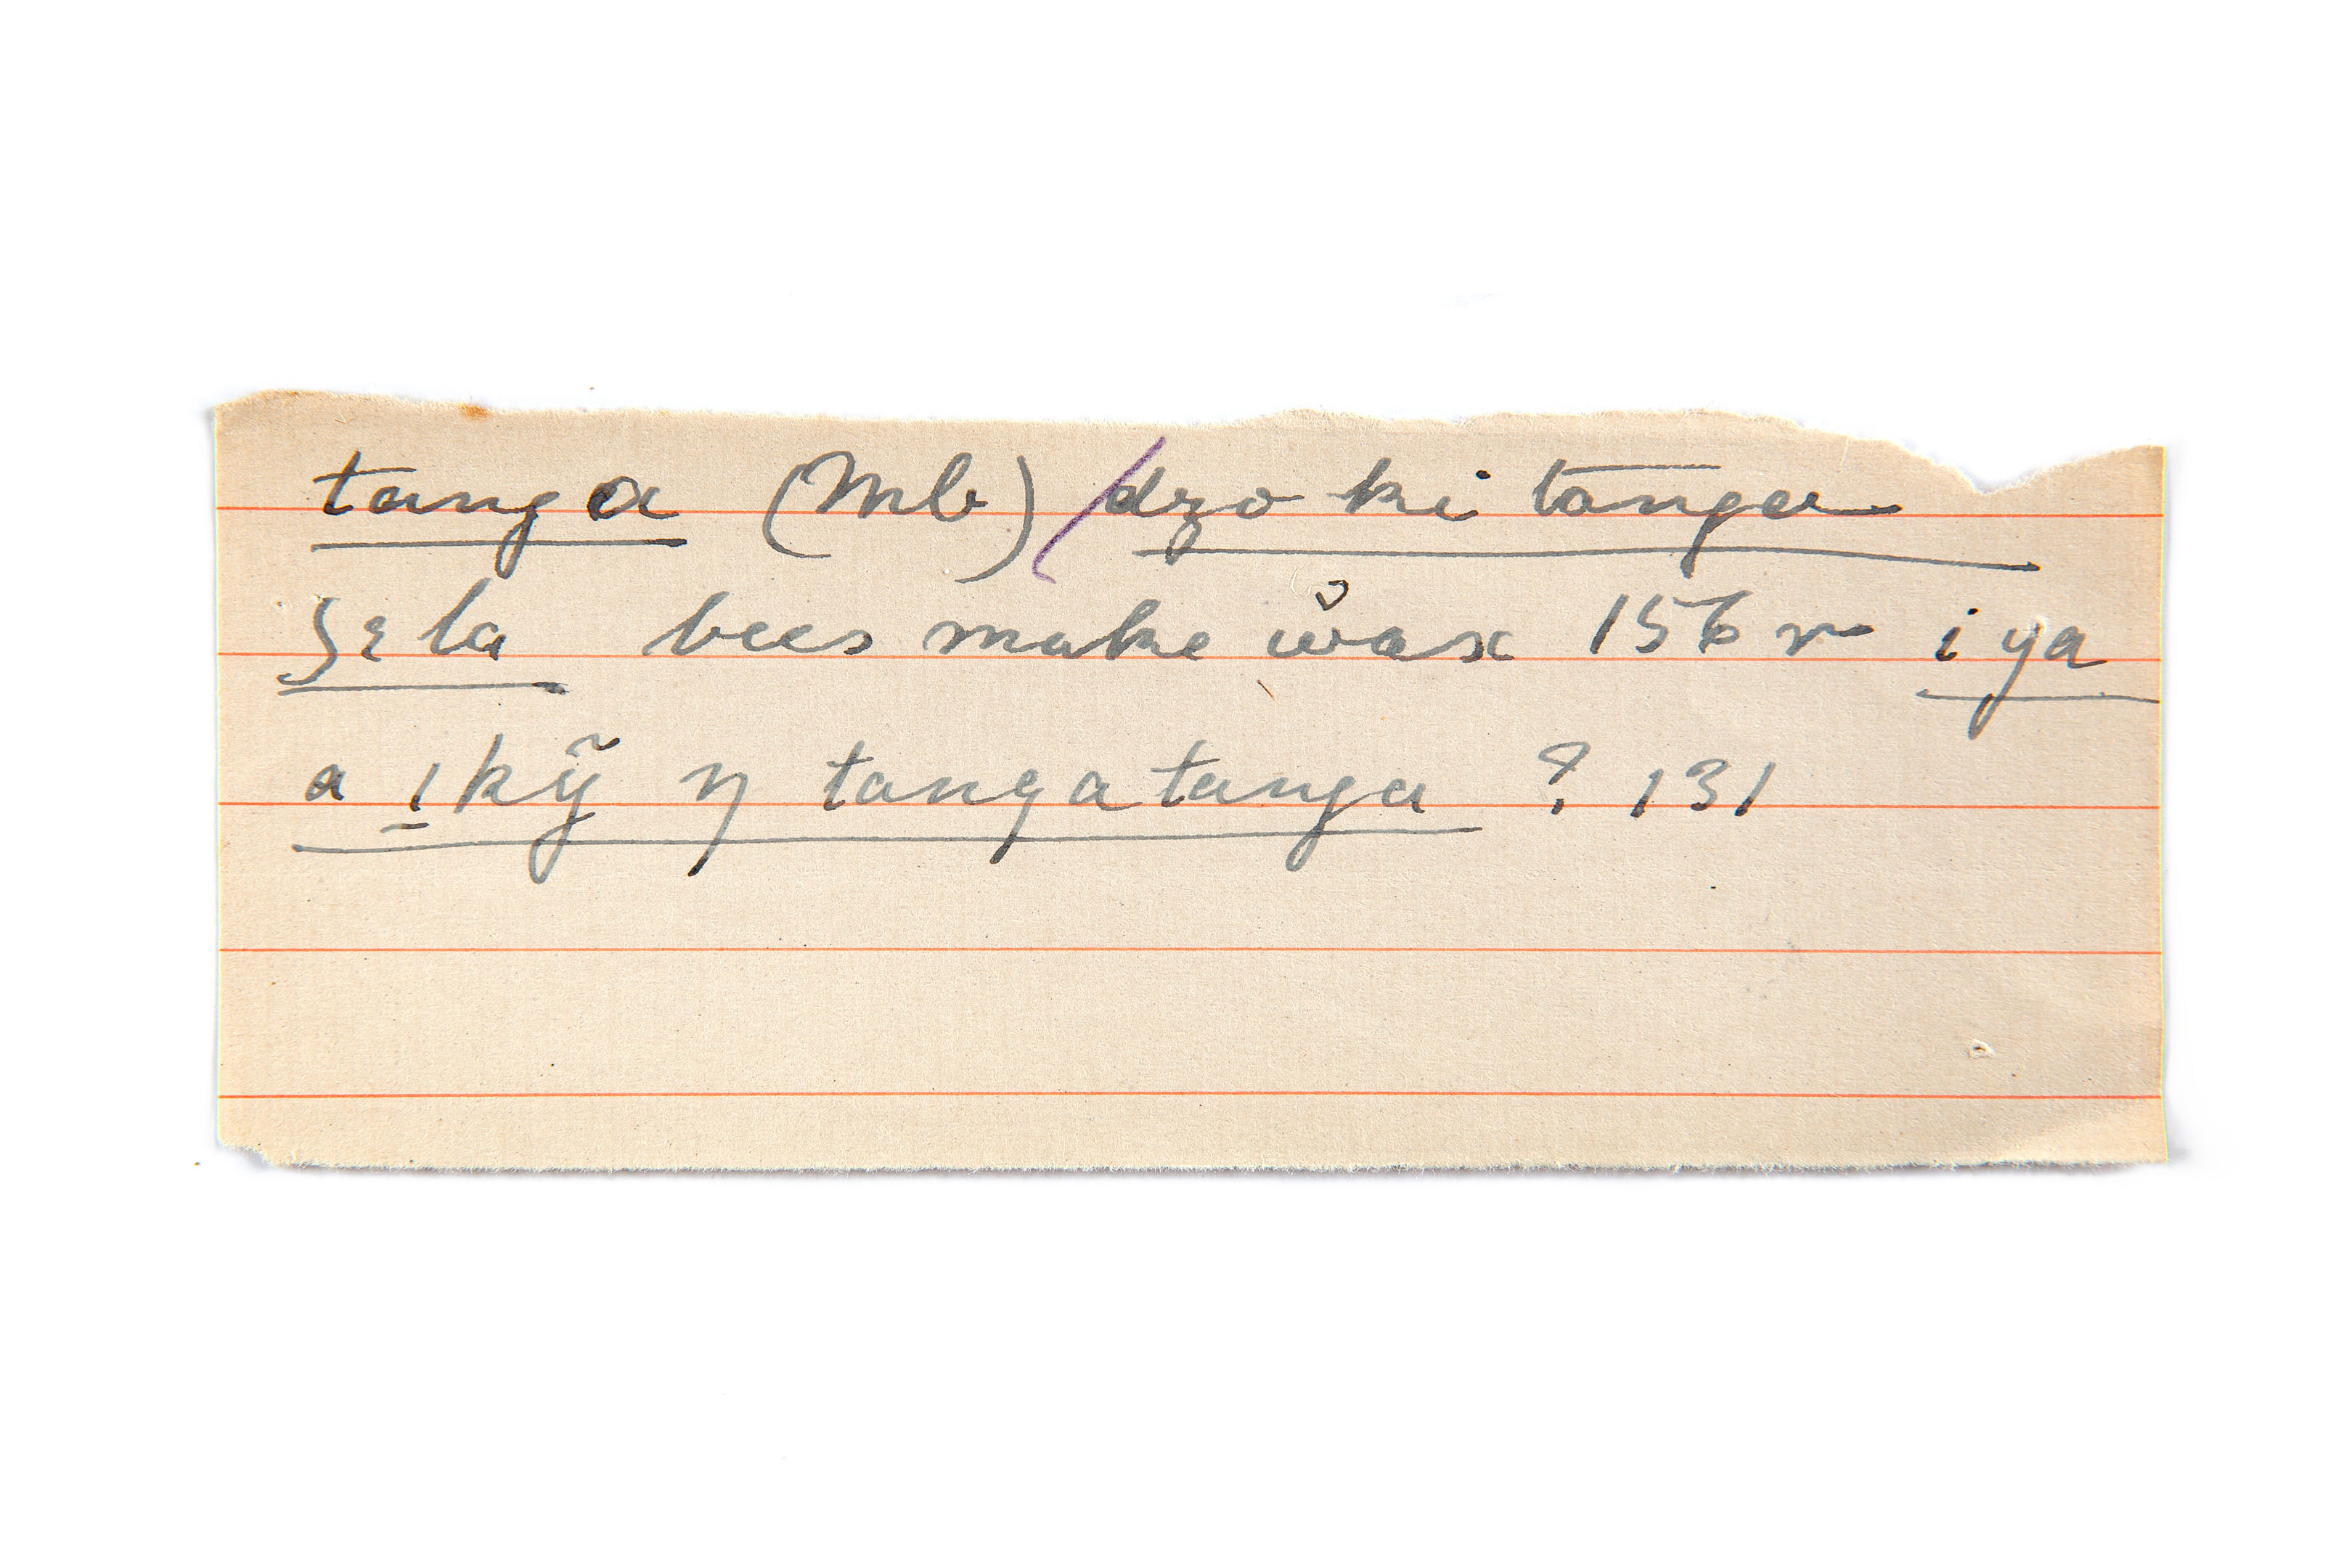 tanga (Mb) / dzo ki tanga
ʒɛla bees make wax 156 r i ya
a ıkỹ ŋ tangatanga ? 131